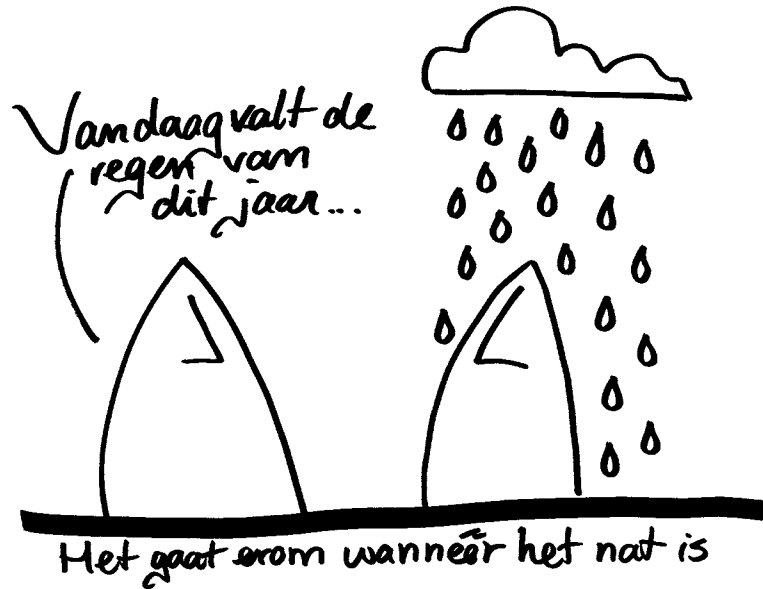 Vandaag valt de
regen van
dit jaar...
Het gaat erom wannéér het nat is